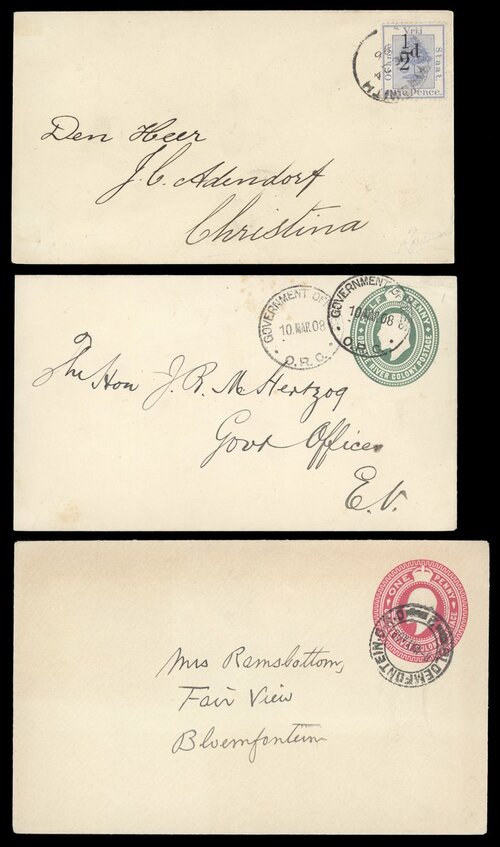 Oranje Vrij Staat.
½d
Pence.
Den Heer
J. C. Adendorf
Christina
GOVERNMENT
10.MAR.08
O.R.C.
GOVERNMENT
MAR 08
O.R.C.
HALF PENNY
RIVER COLONY POSTAGE
The Hon J. R. M. Hertzog
Govt Offices
E.V.
ONE PENNY
BLOEMFONTEIN.
Mrs Ramsbottom,
Fair View
Bloemfontein